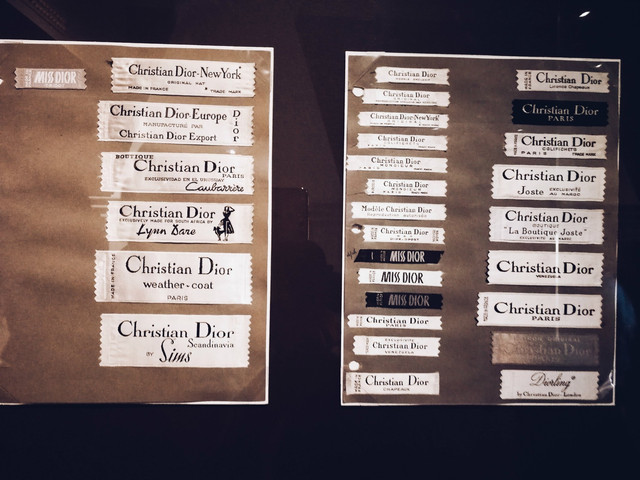 MISS DIOR
Christian Dior-New York
ORIGINAL HAT
MADE IN FRANCE TRADE MARK
Christian Dior-Europe
MANUFACTURÉ PAR
Christian Dior Export
Dior
BOUTIQUE
Christian Dior
PARIS
EXCLUSIVIDAD EN EL URUGUAY
Caubarrère
Christian Dior
EXCLUSIVELY MADE FOR SOUTH AFRICA BY
Lynn Dare
MADE IN FRANCE
Christian Dior
weather-coat
PARIS
Christian Dior
Scandinavia
BY Sims
Christian Dior
Christian Dior
Christian Dior-New York
Christian Dior
Christian Dior
MONSIEUR
Christian Dior
MONSIEUR
Modèle Christian Dior
Christian Dior
MISS DIOR
MISS DIOR
MISS DIOR
Christian Dior
PARIS
Christian Dior
VENEZUELA
Christian Dior
CHAPEAUX
Christian Dior
Christian Dior
PARIS
Christian Dior
COLIFICHETS
PARIS TRADE MARK
Christian Dior
Joste EXCLUSIVITÉ
AU MAROC
Christian Dior
BOUTIQUE
"La Boutique Joste"
EXCLUSIVITÉ AU MAROC
Christian Dior
VENEZUELA
Christian Dior
PARIS
Christian Dior
Diorling
by Christian Dior-London